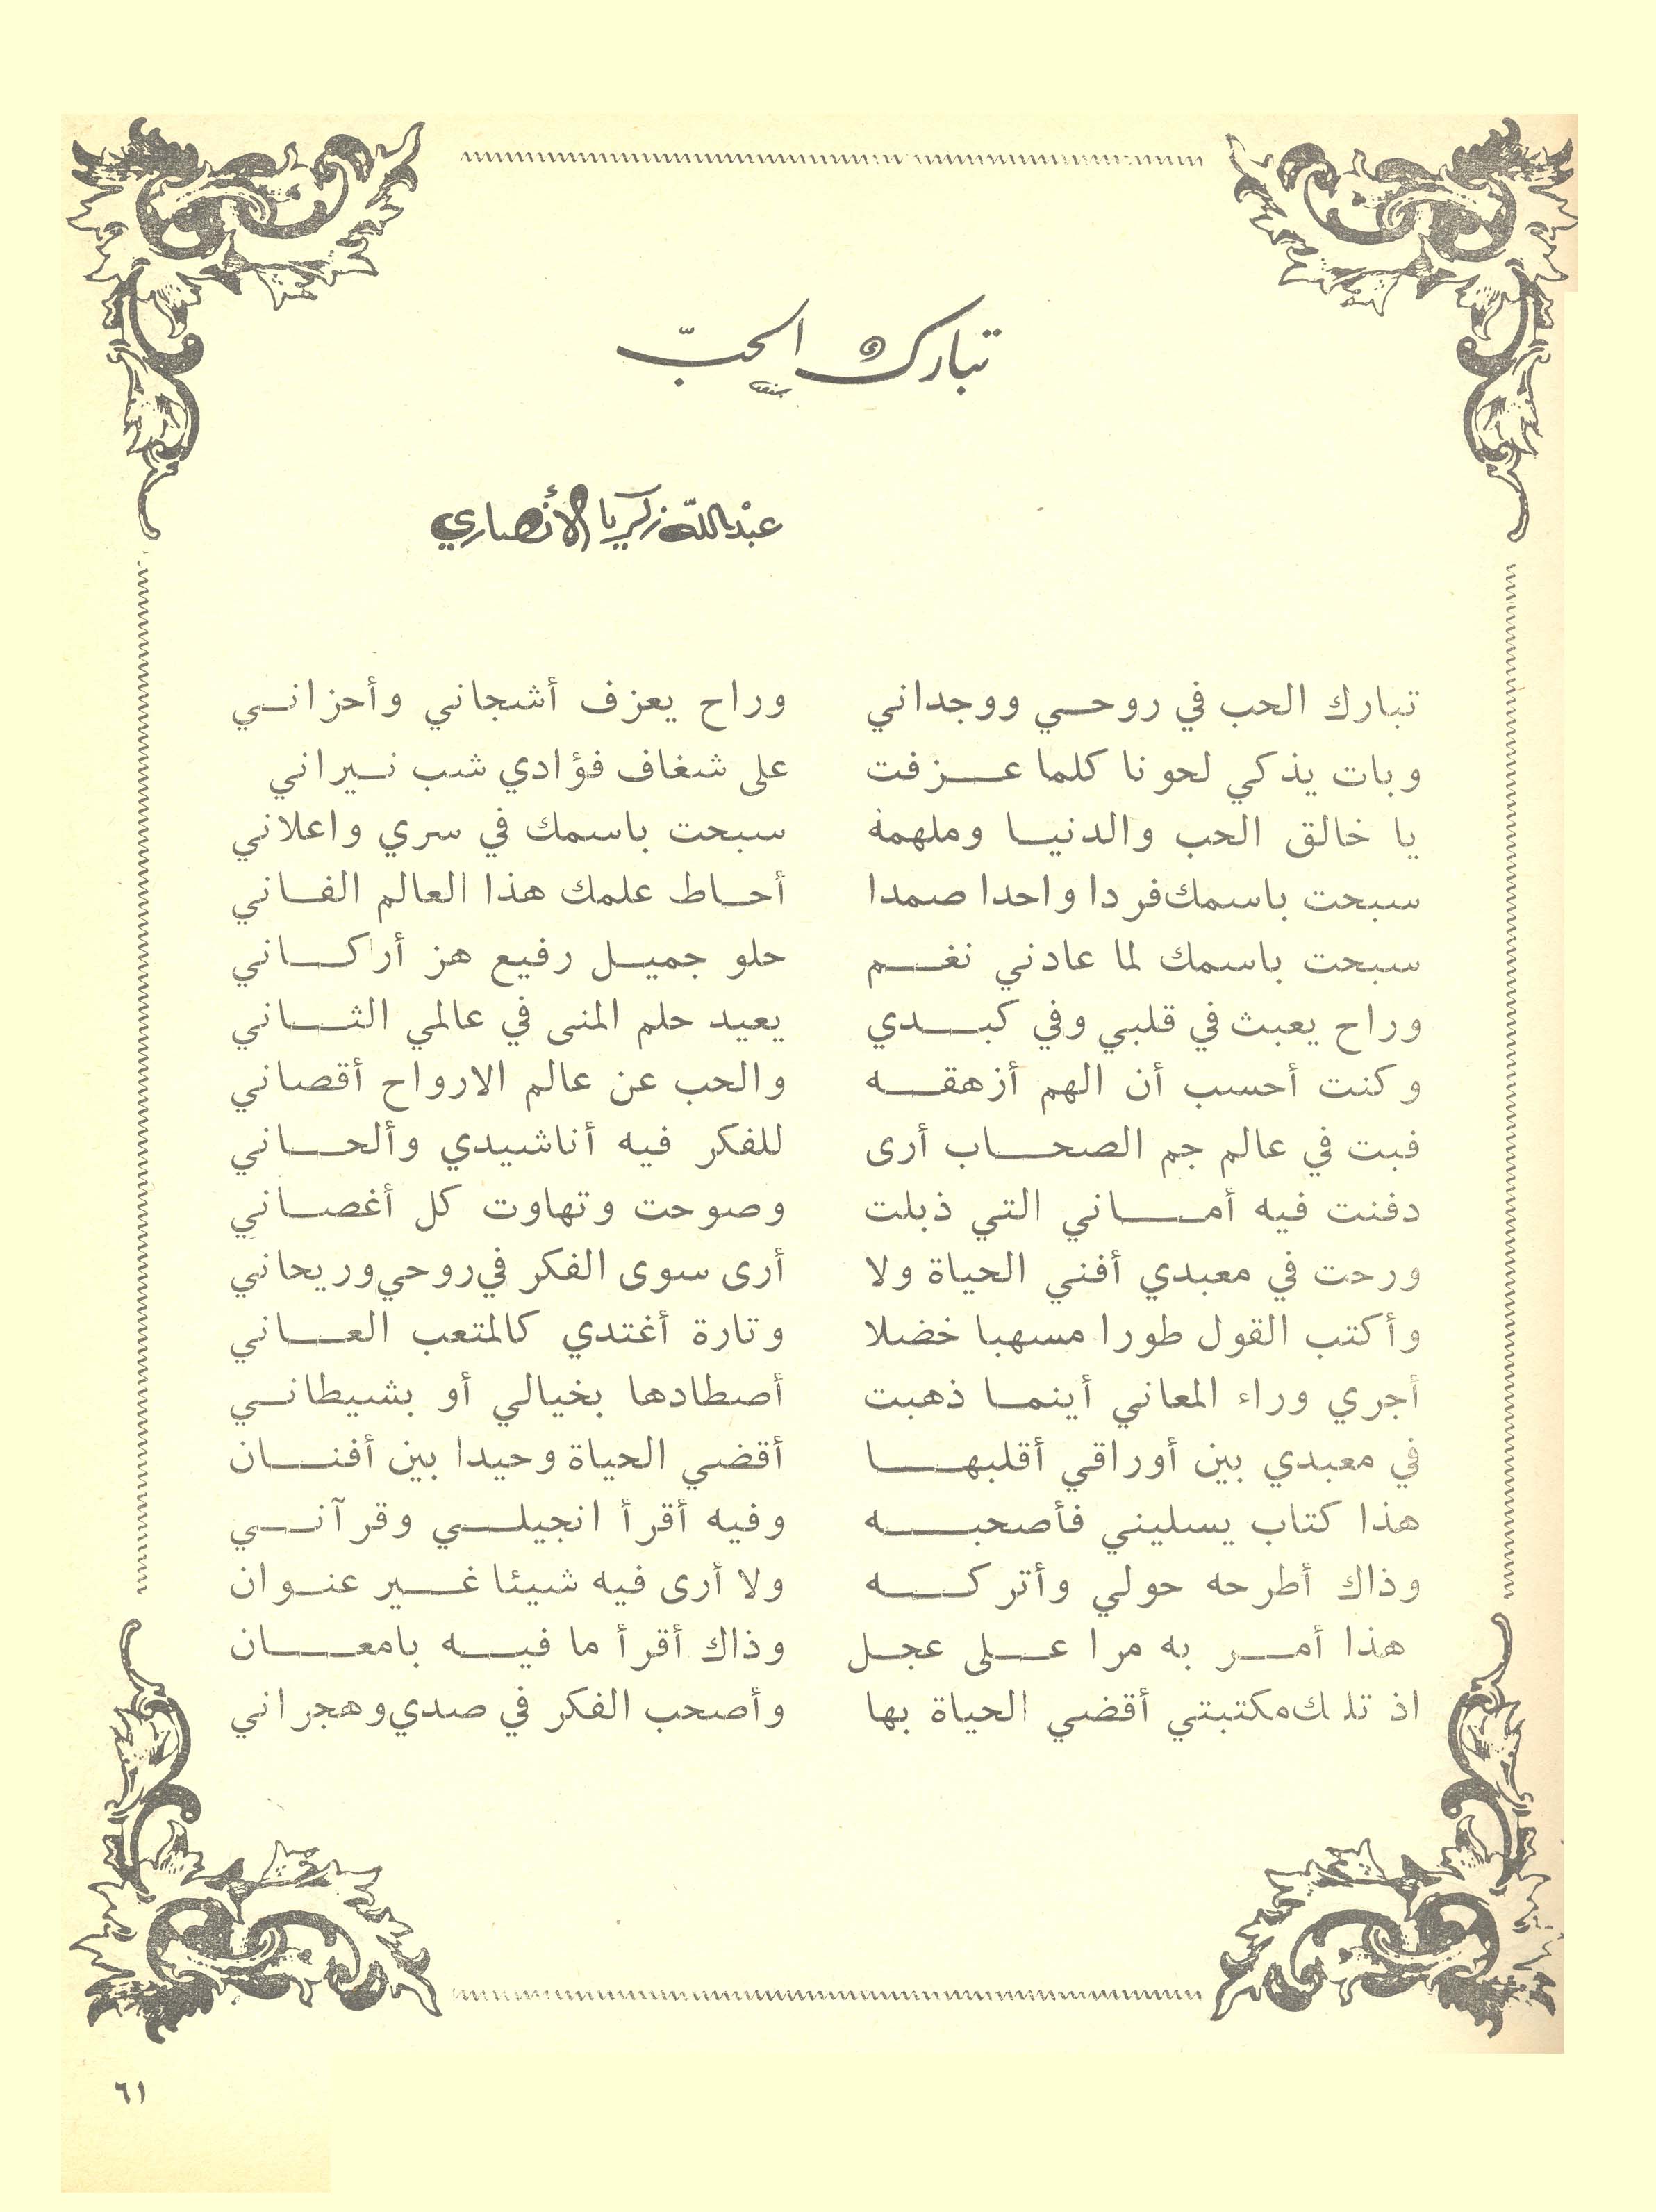 تبارك الحبّ
عبدالله زكريا الأنصاري
تبارك الحب في روحي ووجداني وراح يعزف أشجاني وأحزاني
وبات يذكي لحونا كلما عزفت على شغاف فؤادي شب نيراني
يا خالق الحب والدنيا وملهمة سبحت باسمك في سري واعلاني
سبحت باسمك فردا واحدا صمدا أحاط علمك هذا العالم الفاني
سبحت باسمك لما عادني نغم حلو جميل رفيع هز أركاني
وراح يعبث في قلبي وفي كبدي يعيد حلم المنى في عالمي الثاني
وكنت أحسب أن الهم أزهقه والحب عن عالم الارواح أقصاني
فبت في عالم جم الصحاب أرى للفكر فيه أناشيدي وألحاني
دفنت فيه أماني التي ذبلت وصوحت وتهاوت كل أغصاني
ورحت في معبدي أفني الحياة ولا أرى سوى الفكر في روحي وريحاني
وأكتب القول طورا مسهبا خضلا وتارة أغتدي كالمتعب العاني
أجري وراء المعاني أينما ذهبت أصطادها بخيالي أو بشيطاني
في معبدي بين أوراقي أقلبها أقضي الحياة وحيدا بين أفنان
هذا كتاب يسليني فأصحبه وفيه أقرأ انجيلي وقرآني
وذاك أطرحه حولي وأتركه ولا أرى فيه شيئا غير عنوان
هذا أمر به مرا على عجل وذاك أقرأ ما فيه بامعان
اذ تلك مكتبتي أقضي الحياة بها وأصحب الفكر في صدي وهجراني
٦١